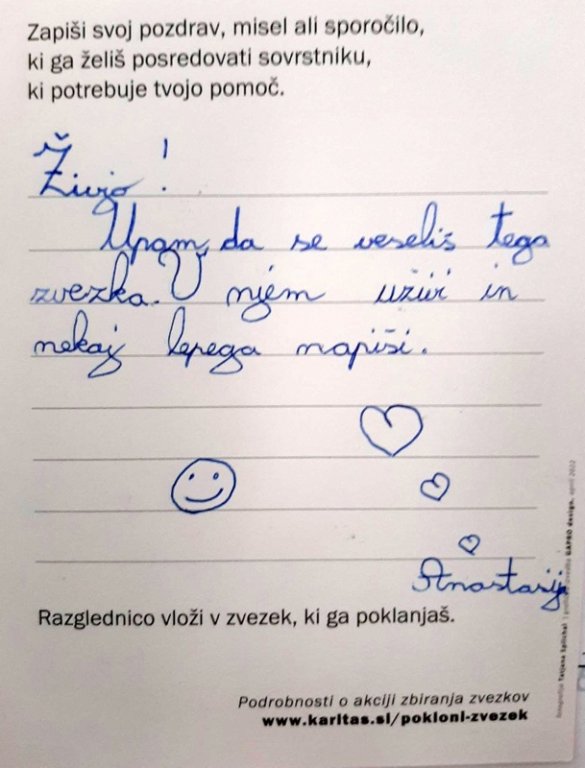 Zapiši svoj pozdrav, misel ali sporočilo,
ki ga želiš posredovati sovrstniku,
ki potrebuje tvojo pomoč.
Živjo!
Upam, da se veseliš tega
zvezka. V njem uživi in
nekaj lepega napiši.
Anastasij
Razglednico vloži v zvezek, ki ga poklanjaš.
Podrobnosti o akciji zbiranja zvezkov
www.karitas.si/pokloni-zvezek